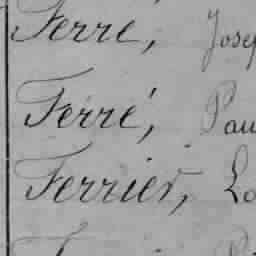 Ferré, Jose
Ferré, Pau
Ferrier, Lo